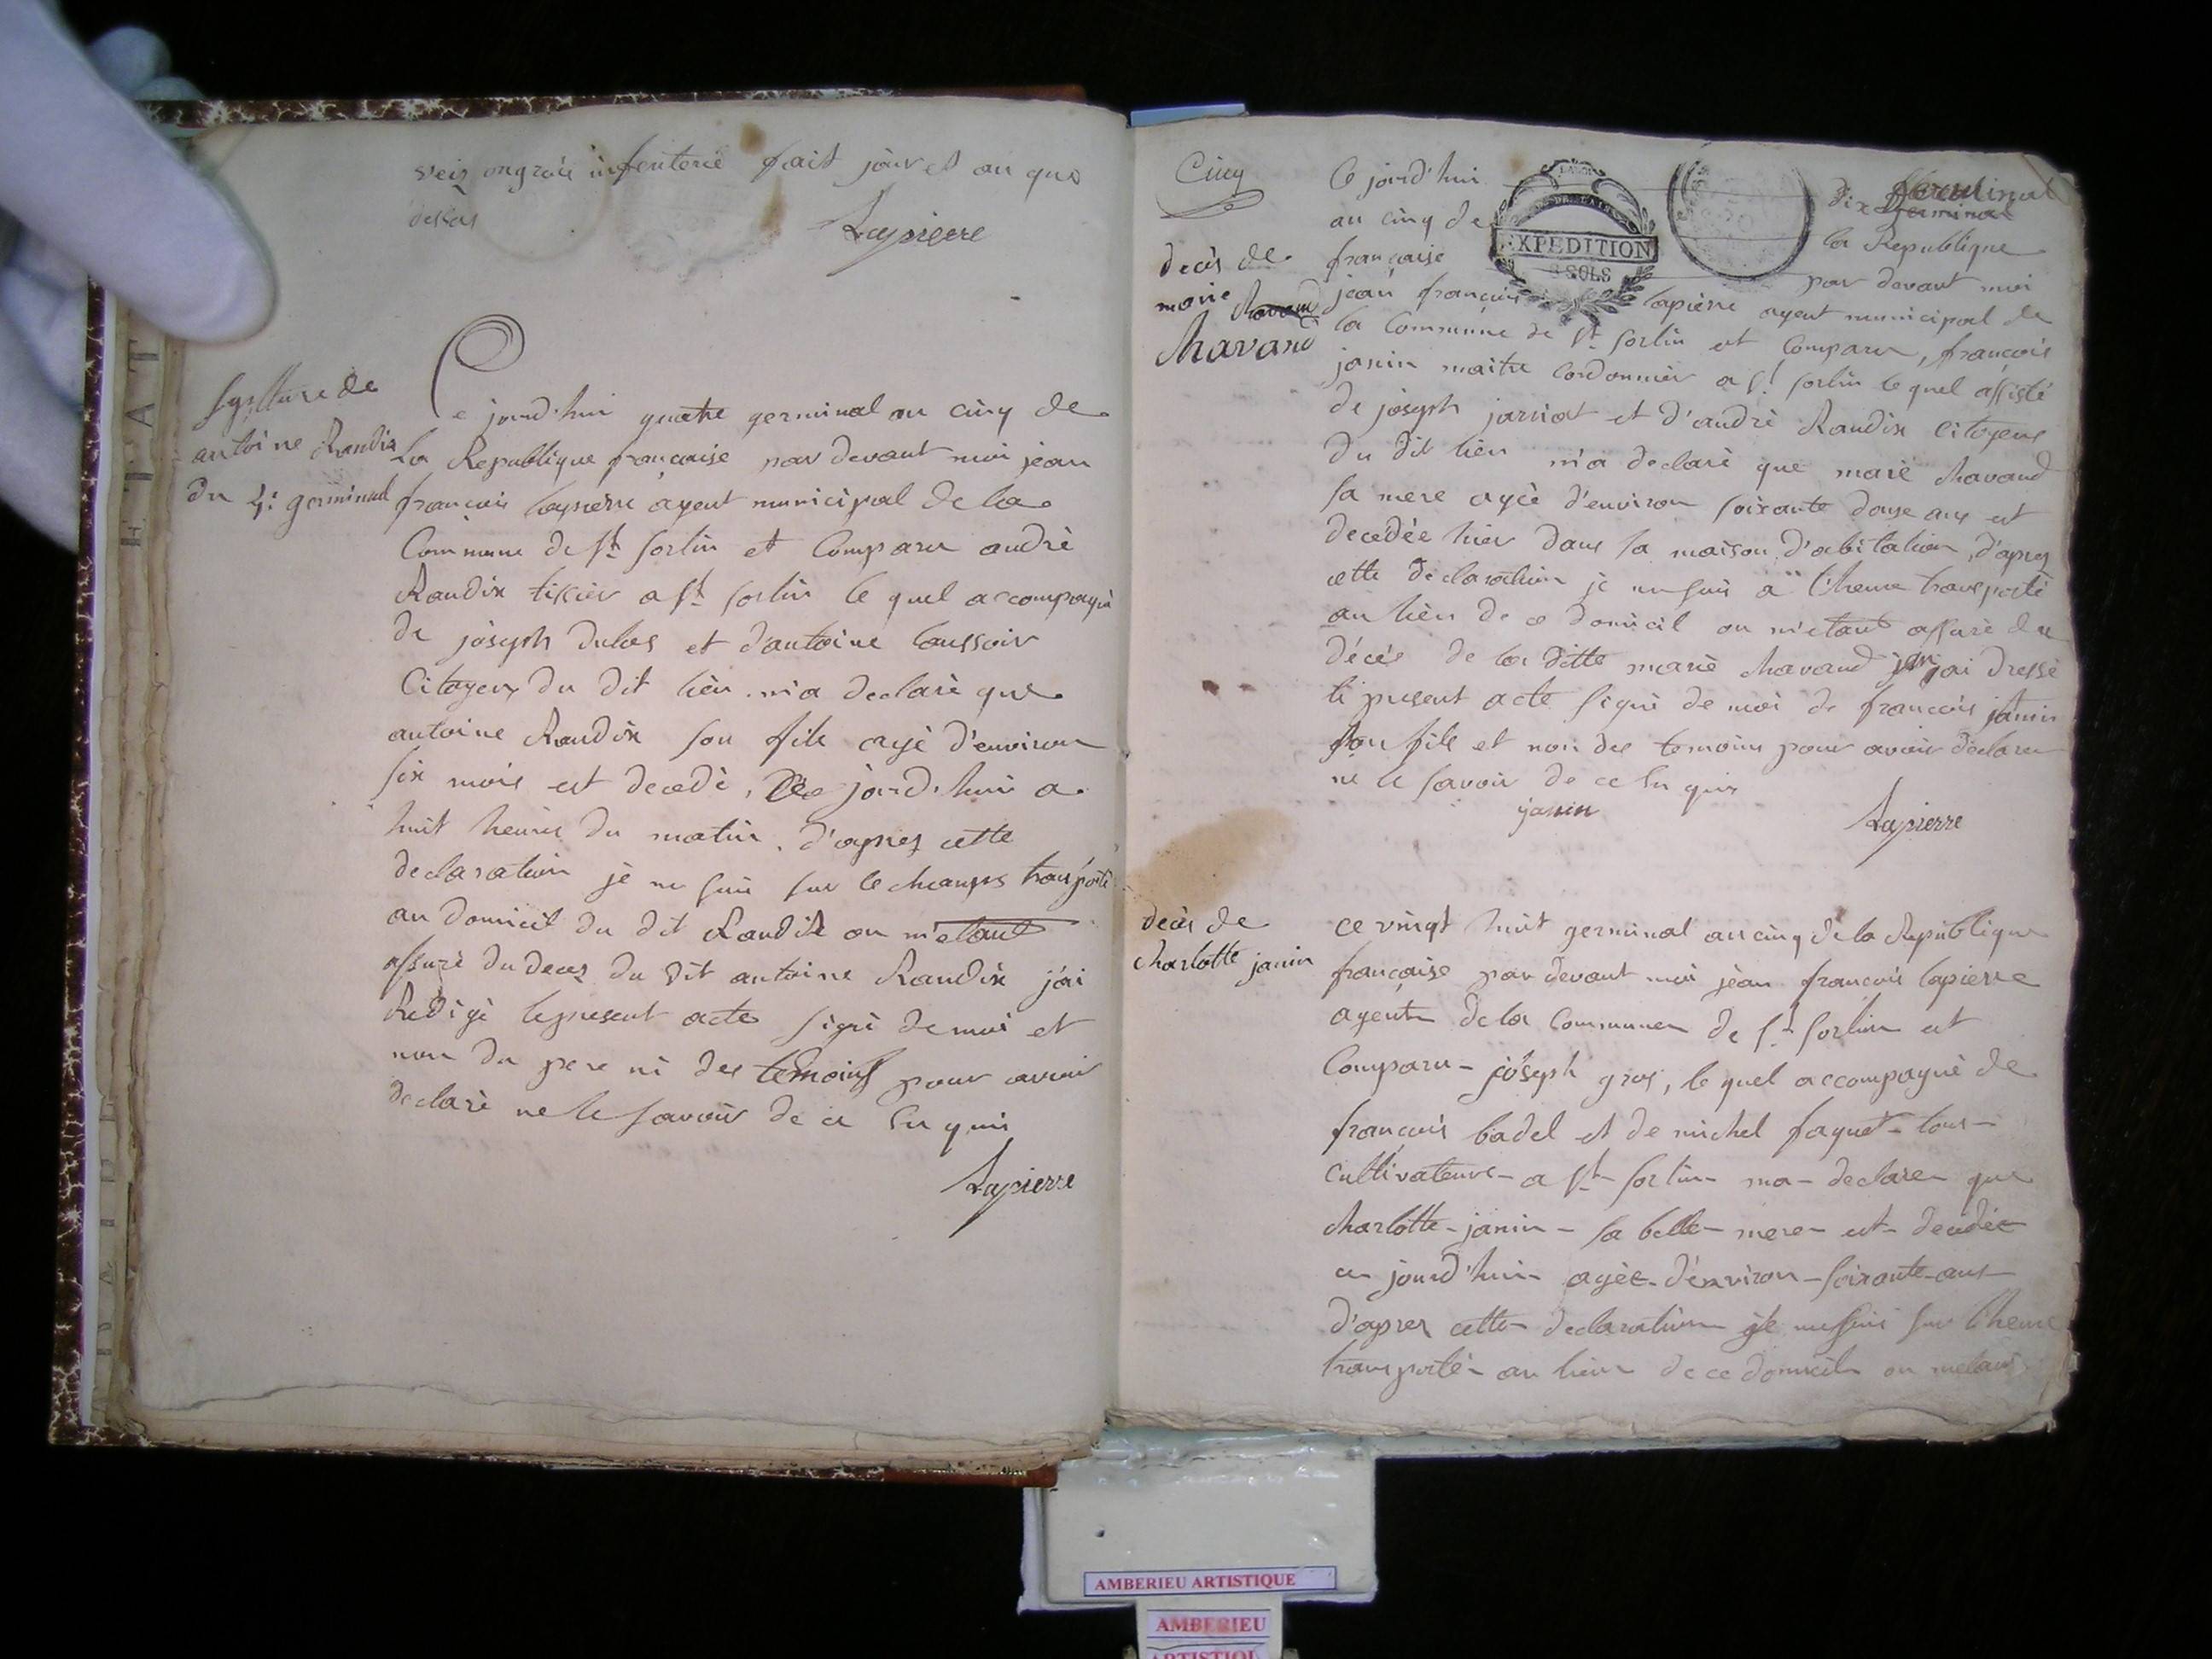 infenterie fait jour et an que
dessus
Lapierre
sepulture de
antoine Randix
du 4: germinal
Ce jourd'hui quatre germinal an cinq de
la Republique francaise par devant moi jean
francois lapierre agent municipal de la
Commune de St sorlin et Comparu andrè
Randix tisier a St sorlin le quel accompagné
de joseph dulas et d'antoine
Citoyens du dit lieu m'a declarè que
antoine Randix son fils agè d'environ
six mois est decedè, ce jourd'hui a
huit heures du matin. d'apres cette
declaration je me suis sur le champs transporté
au domicil du dit Randix ou m'etant
assurè du deces du dit antoine Randix j'ai
Redigè le present acte signè de moi et
non du pere ni des temoins pour avoir
declarè ne le savoir de ce En quis
Lapierre
Cinq
decès de
marie
Chavand
Ce jourd'hui dix germinal
an cinq de la Republique
francaise par devant moi
jean francois lapierre agent municipal de
la Commune de St sorlin est Comparu, francois
janin maitre cordonnier a St sorlin le quel assisté
de joseph jarriat et d'andrè Randix Citoyens
du dit lieu m'a declarè que marie Chavand
sa mere agèe d'environ soixante douze ans est
decedée hier dans sa maison d'abitation, d'apres
cette declaration je me suis a l'heure transporté
au lieu de ce domicil ou m'etant assurè du
décés de la ditte marie Chavand j'ai dressè
le present acte signè de moi de francois janin
son fils et non des temoins pour avoir declarer
ne le savoir de ce En quis
janin
Lapierre
EXPEDITION
SOLS
decès de
charlotte janin
ce vingt huit germinal an cinq de la Republique
francaise par devant moi jean francois lapierre
agent de la Commune de St sorlin est
Comparu joseph gros, le quel accompagné de
francois badel et de michel faquet tous
cultivateurs a St sorlin ma declare que
charlotte janin sa belle mere est decedée
ce jourd'hui agèe d'environ soixante ans
d'apres cette declaration je me suis sur l'heure
transportè au lieu de ce domicil ou metant
AMBERIEU ARTISTIQUE
AMBERIEU
ARTISTIQUE